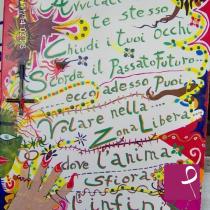 te stesso
Chiudi tuoi Occhi
Scorda il Passato Futuro
ecco adesso Puoi
Volare nella....
Zona Libera
dove l'anima
Sfiora
l'infini